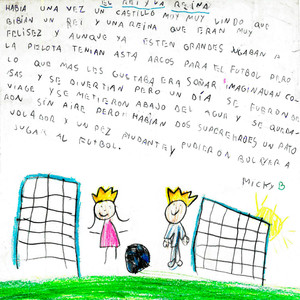 EL REY Y LA REINA
HABIA UNA VEZ UN CASTILLO MUY MUY LINDO QUE
BIBIAN UN REI Y UNA REINA QUE ERAN MUY
FELISEZ Y AUNQUE YA ESTEN GRANDES JUGABAN A
LA PELOTA TENIAN ASTA ARCOS PARA EL FUTBOL PERO
LO QUE MAS LES GUSTABA ERA SOÑAR IMAGINAVAN CO
SAS Y SE DIVERTIAN PERO UN DIA SE FUERON DE
VIAGE Y SE METIERON ABAJO DEL AGUA Y SE QUEDA
RON SIN AIRE PERO HABIAN DOS SUPEREROES UN PATO
VOLADOR Y UN PEZ MUDANTE Y PUDIERON BOLBER A
JUGAR AL FUTBOL.
MICKY B